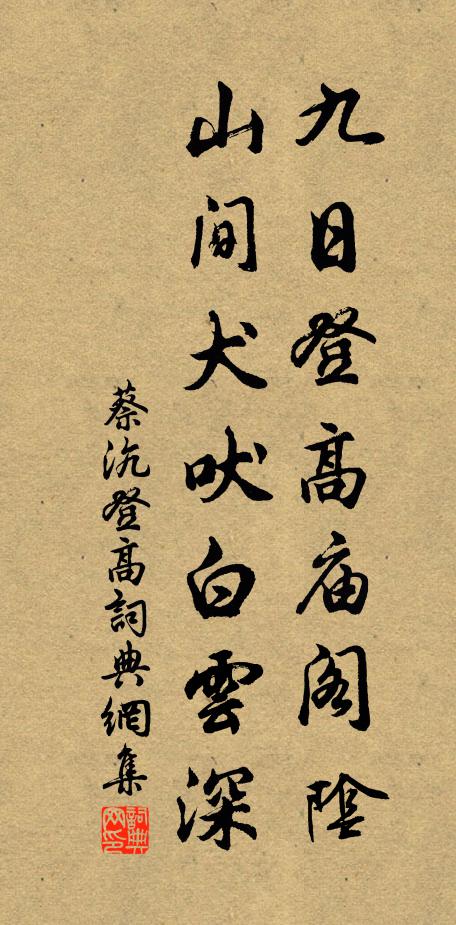 九日登高庙阁陰
山间犬吠白雲深
蔡沈登高詞典網集
詞典网印